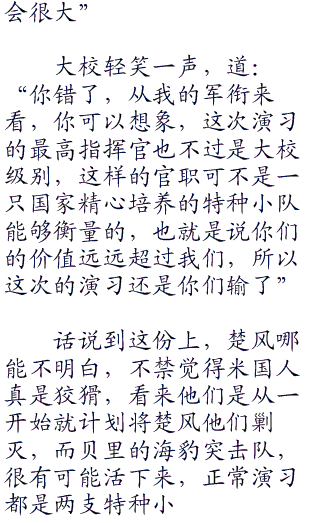 会很大”
大校轻笑一声，道：
“你错了，从我的军衔来
看，你可以想象，这次演习
的最高指挥官也不过是大校
级别，这样的官职可不是一
只国家精心培养的特种小队
能够衡量的，也就是说你们
的价值远远超过我们，所以
这次的演习还是你们输了”
话说到这份上，楚风哪
能不明白，不禁觉得米国人
真是狡猾，看来他们是从一
开始就计划将楚风他们剿
灭，而贝里的海豹突击队，
很有可能活下来，正常演习
都是两支特种小